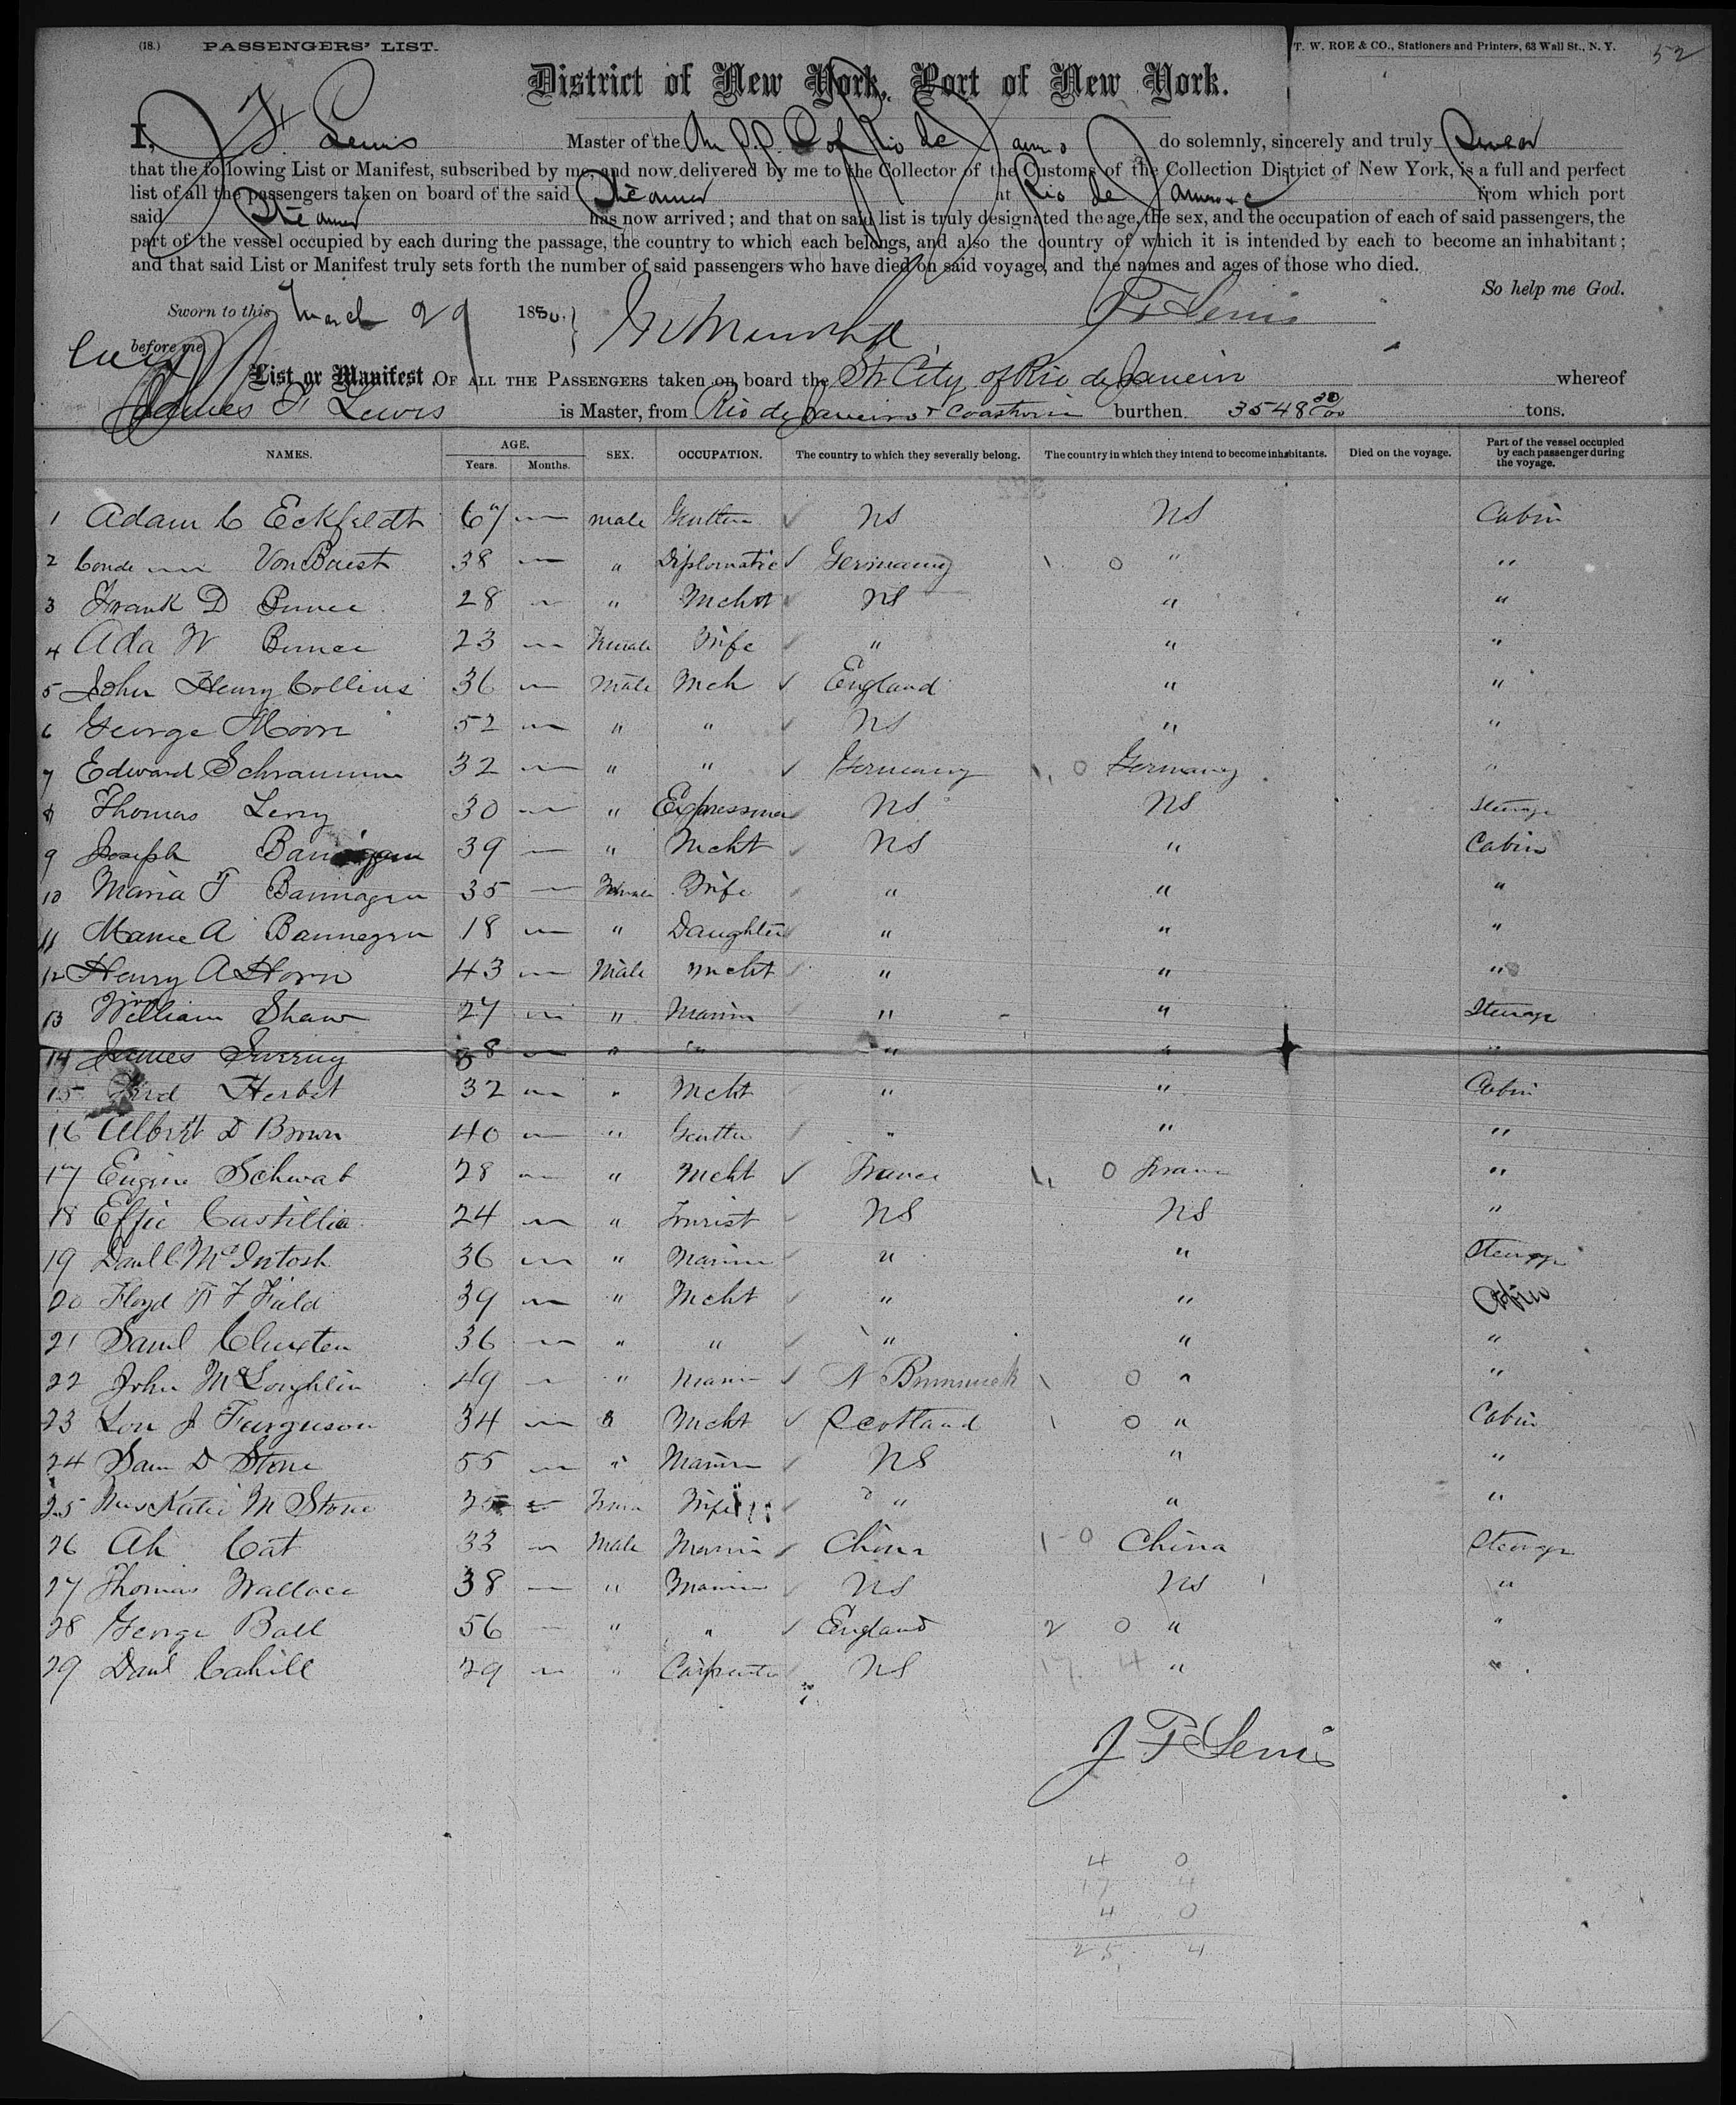 (18.) PASSENGERS' LIST. T. W. ROE & CO., Stationers and Printers, 63 Wall St., N. Y. 52
District of New York, Port of New York.
I, J. F. Lewis Master of the Am S.S. C of Rio de Janeiro do solemnly, sincerely and truly Swear
that the following List or Manifest, subscribed by me, and now delivered by me to the Collector of the Customs of the Collection District of New York, is a full and perfect
list of all the passengers taken on board of the said Steamer at Rio de Janeiro from which port
said Steamer has now arrived; and that on said list is truly designated the age, the sex, and the occupation of each of said passengers, the
part of the vessel occupied by each during the passage, the country to which each belongs, and also the country of which it is intended by each to become an inhabitant;
and that said List or Manifest truly sets forth the number of said passengers who have died on said voyage, and the names and ages of those who died.
So help me God.
Sworn to this March 29 1880. J F Lewis
before me
List or Manifest OF ALL THE PASSENGERS taken on board the Str City of Rio de Janeiro whereof
James F Lewis is Master, from Rio de Janeiro & Coastwise burthen 3548 30/100 tons.
NAMES. AGE. Years. Months. SEX. OCCUPATION. The country to which they severally belong. The country in which they intend to become inhabitants. Died on the voyage. Part of the vessel occupied by each passenger during the voyage.
1 Adam C Eckfeldt 67 — male Gentlen ✓ US US Cabin
2 Conde — Von Baest 38 — " Diplomatic ✓ Germany \ 0 " "
3 Frank D Bunce 28 — " Mcht ✓ US " "
4 Ada W Bunce 23 — Female Wife ✓ " " "
5 John Henry Collins 36 — Male Mch ✓ England " "
6 George Moore 52 — " " ✓ US " "
7 Edward Schramm 32 — " " ✓ Germany \ 0 Germany "
8 Thomas Leny 30 — " Expressman US US Steerage
9 Joseph Bannigan 39 — " Mcht ✓ US " Cabin
10 Maria T Bannagan 35 — Female Wife ✓ " " "
11 Mame A Bannegan 18 — " Daughter " " "
12 Henry A Horn 43 — Male Mcht ✓ " " "
13 William Shaw 27 — " Marin " " Steerage
14 James 38 — " " " " "
15 Fred Herbst 32 — " Mcht " " Cabin
16 Albert D Brown 40 — " Gentle ✓ " " "
17 Eugine Schwab 28 — " Mcht ✓ France \ 0 France "
18 Effie Castillia 24 — " Tourist ✓ US US "
19 Danl C McIntosh 36 — " Marine ✓ " " Steerage
20 Floyd F F Field 39 — " Mcht ✓ " " Cabin
21 Saml Cluxten 36 — " " ✓ " " "
22 John McLoughlin 49 — " Marin ✓ N Brunswick \ 0 " "
23 Lou J Furguson 34 — " Mcht ✓ Scotland \ 0 " Cabin
24 Sam D Stone 55 — " Marine ✓ US " "
25 Mrs Katie M Stone 25 — Fema Wife ✓ " " "
26 Ah Cat 33 — Male Marin ✓ China 1 0 China Steerage
27 Thomas Wallace 38 — " Marine ✓ US US "
28 George Ball 56 — " " ✓ England 2 0 " "
29 Danl Cahill 29 — " Carpenter US 17 4 " "
J F Lewis
4 0
17 4
4 0
25 4